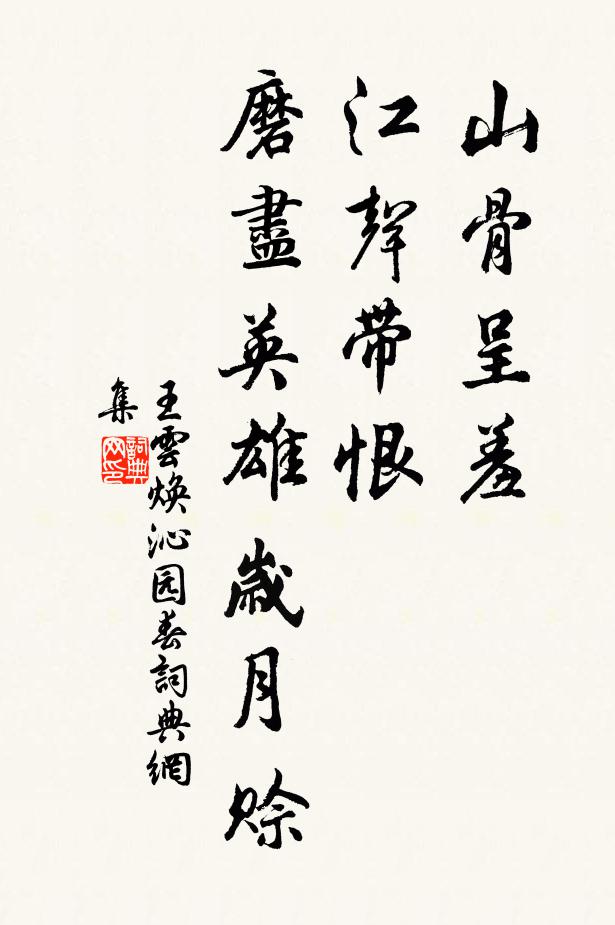 山骨呈羞
江聲带恨
磨盡英雄歲月賒
王雲焕沁园春詞典網
集
詞典网印